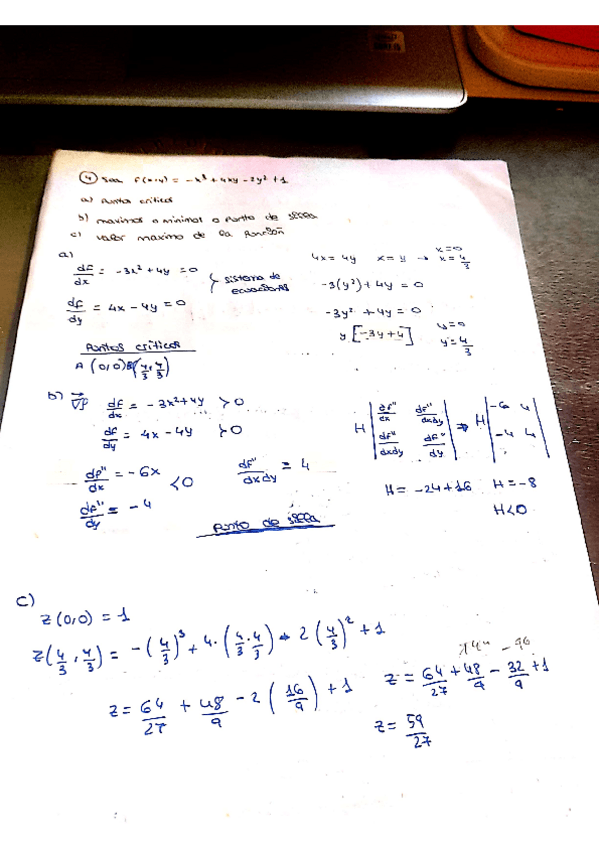 ④ Sea f(x,y) = -x³ + 4xy - 2y² + 1
a) Puntos críticos
b) maximos o minimos o punto de silla
c) valor maximo de la función
a)
df/dx = -3x² + 4y = 0
df/dy = 4x - 4y = 0
} sistema de ecuaciones
4x = 4y x = y → x = 0 x = 4/3
-3(y²) + 4y = 0
-3y² + 4y = 0
y [-3y + 4] y = 0 y = 4/3
Puntos críticos
A (0,0) B(4/3, 4/3)
b) df/dx = -3x² + 4y > 0
df/dy = 4x - 4y > 0
df''/dx = -6x < 0 df''/dxdy = 4
df''/dy = -4
Punto de silla
H | df''/dx df''/dxdy | ⇒ H | -6 4 |
| df''/dxdy df''/dy | | -4 4 |
H = -24 + 16 H = -8
H < 0
c)
z(0,0) = 1
z(4/3, 4/3) = -(4/3)³ + 4·(4/3·4/3) - 2(4/3)² + 1
z = 64/27 + 48/9 - 2(16/9) + 1
z = 64/27 + 48/9 - 32/9 + 1
z = 59/27